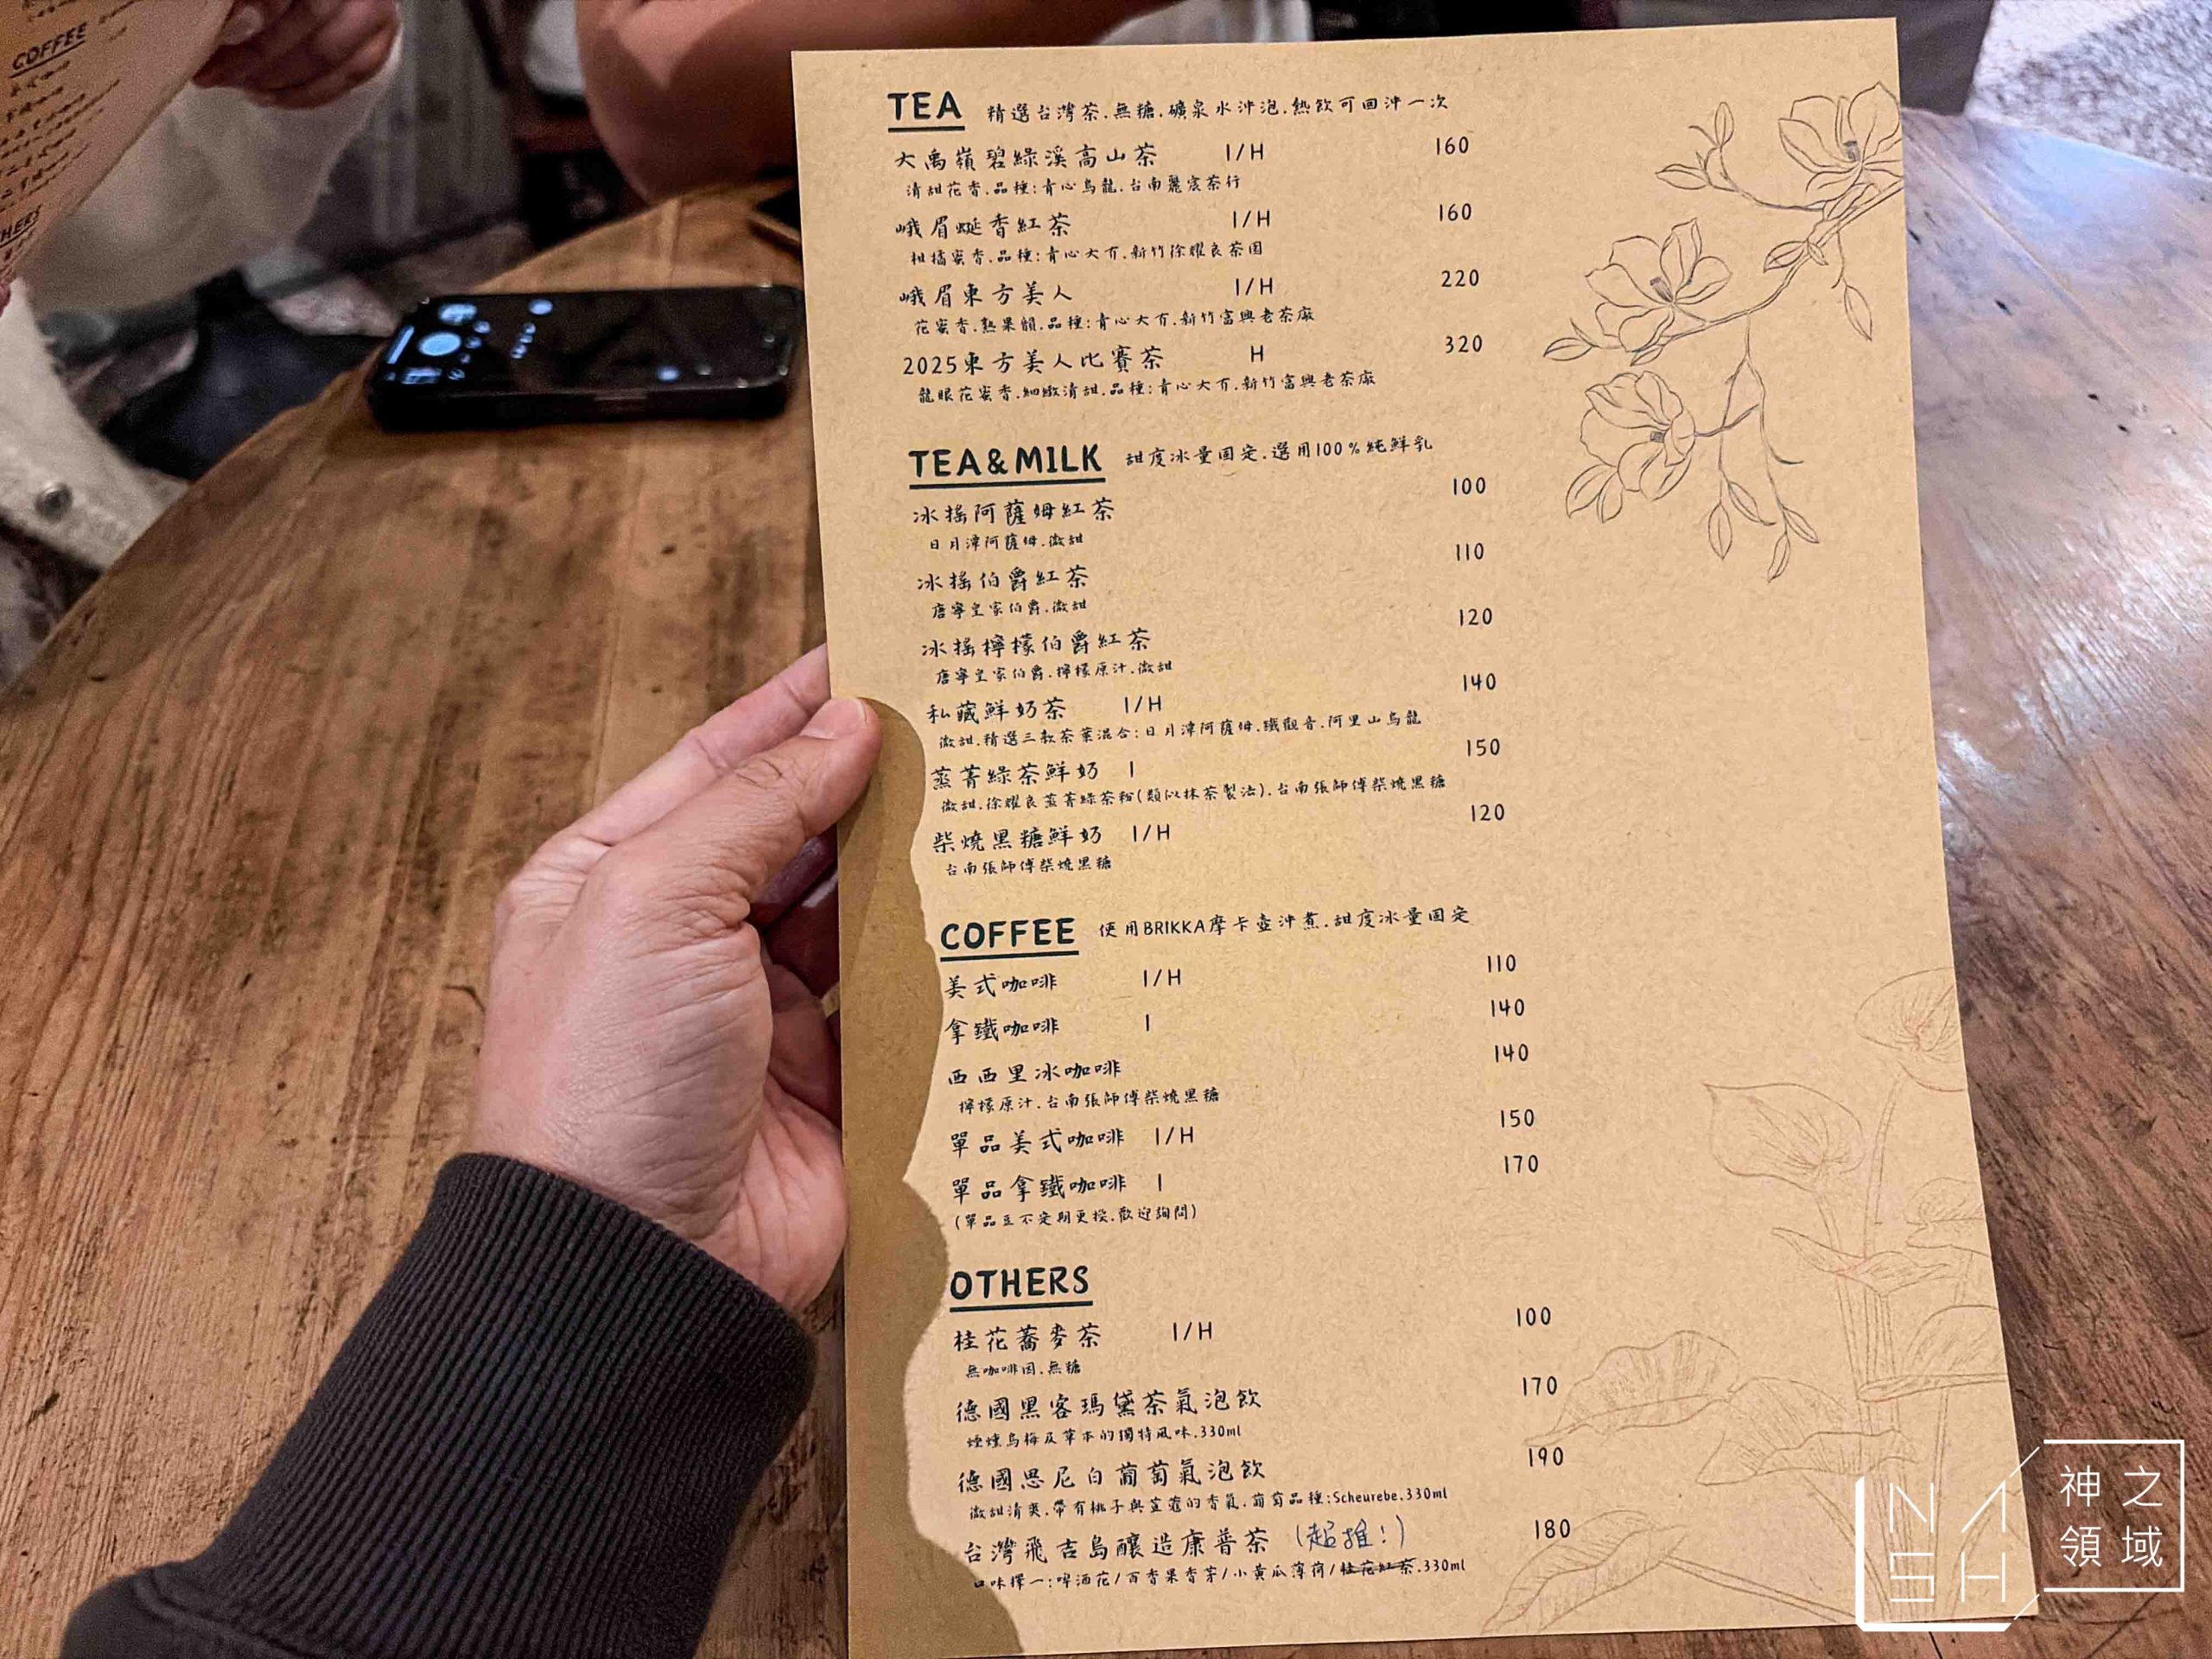 COFFEE
TEA 精選台灣茶.無糖.礦泉水沖泡.熱飲可回沖一次
大禹嶺碧綠溪高山茶 I/H 160
清甜花香.品種:青心烏龍.台南麗宸茶行
峨眉蜒香紅茶 I/H 160
柑橘蜜香.品種:青心大冇.新竹徐耀良茶園
峨眉東方美人 I/H 220
花蜜香.熟果韻.品種:青心大冇.新竹富興老茶廠
2025東方美人比賽茶 H 320
龍眼花蜜香.細緻清甜.品種:青心大冇.新竹富興老茶廠
TEA&MILK 甜度冰量固定.選用100%純鮮乳
冰搖阿薩姆紅茶 100
日月潭阿薩姆.微甜
冰搖伯爵紅茶 110
唐寧皇家伯爵.微甜
冰搖檸檬伯爵紅茶 120
唐寧皇家伯爵.檸檬原汁.微甜
私藏鮮奶茶 I/H 140
微甜.精選三款茶葉混合:日月潭阿薩姆.鐵觀音.阿里山烏龍
蒸菁綠茶鮮奶 I 150
微甜.徐耀良蒸菁綠茶粉(類似抹茶製法).台南張師傅柴燒黑糖
柴燒黑糖鮮奶 I/H 120
台南張師傅柴燒黑糖
COFFEE 使用BRIKKA摩卡壺沖煮.甜度冰量固定
美式咖啡 I/H 110
拿鐵咖啡 I 140
西西里冰咖啡 140
檸檬原汁.台南張師傅柴燒黑糖
單品美式咖啡 I/H 150
單品拿鐵咖啡 I 170
(單品豆不定期更換.歡迎詢問)
OTHERS
桂花蕎麥茶 I/H 100
無咖啡因.無糖
德國黑客瑪黛茶氣泡飲 170
煙燻烏梅及草本的獨特風味.330ml
德國思尼白葡萄氣泡飲 190
微甜清爽.帶有桃子與荳蔻的香氣.葡萄品種:Scheurebe.330ml
台灣飛吉島釀造康普茶 (超推!) 180
口味擇一:啤酒花/百香果香茅/小黃瓜薄荷/桂花紅茶.330ml
NASH 神之領域